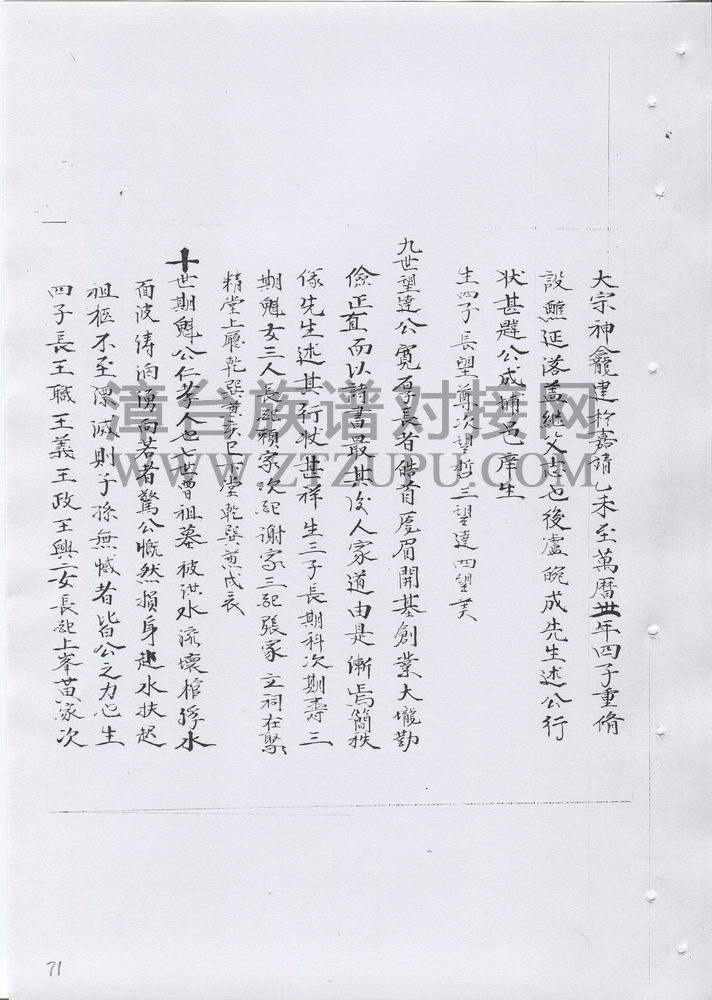 大宗神龕建於嘉靖乙未至萬曆卅年四子重脩
設醮延落盖继父志也後盧晥成先生述公行
状甚韙公成補邑庠生
生四子長望尊次望哲三望達四望美
九世望達公寛厚長者皓首厖眉開基創業大壠勤
儉正直而以詩書最其後人家道由是漸焉簡秩
先生述其行状甚祥生三子長期科次期壽三
期魁女三人長配賴家次配谢家三配張家立祠在聚
精堂上廳乾巽兼亥巳下堂乾巽兼戌辰
十世期魁公仁孝人也七世曾祖墓被洪水流壞棺浮水
面波涛汹湧向若者驚公慨然損身赴水扶起
祖柩不至漂滅則子孫無憾者皆公之力也生
四子長王職王義王政王興二女長配上峯黄家次
漳台族谱对接网
WWW.ZTZUPU.COM
71